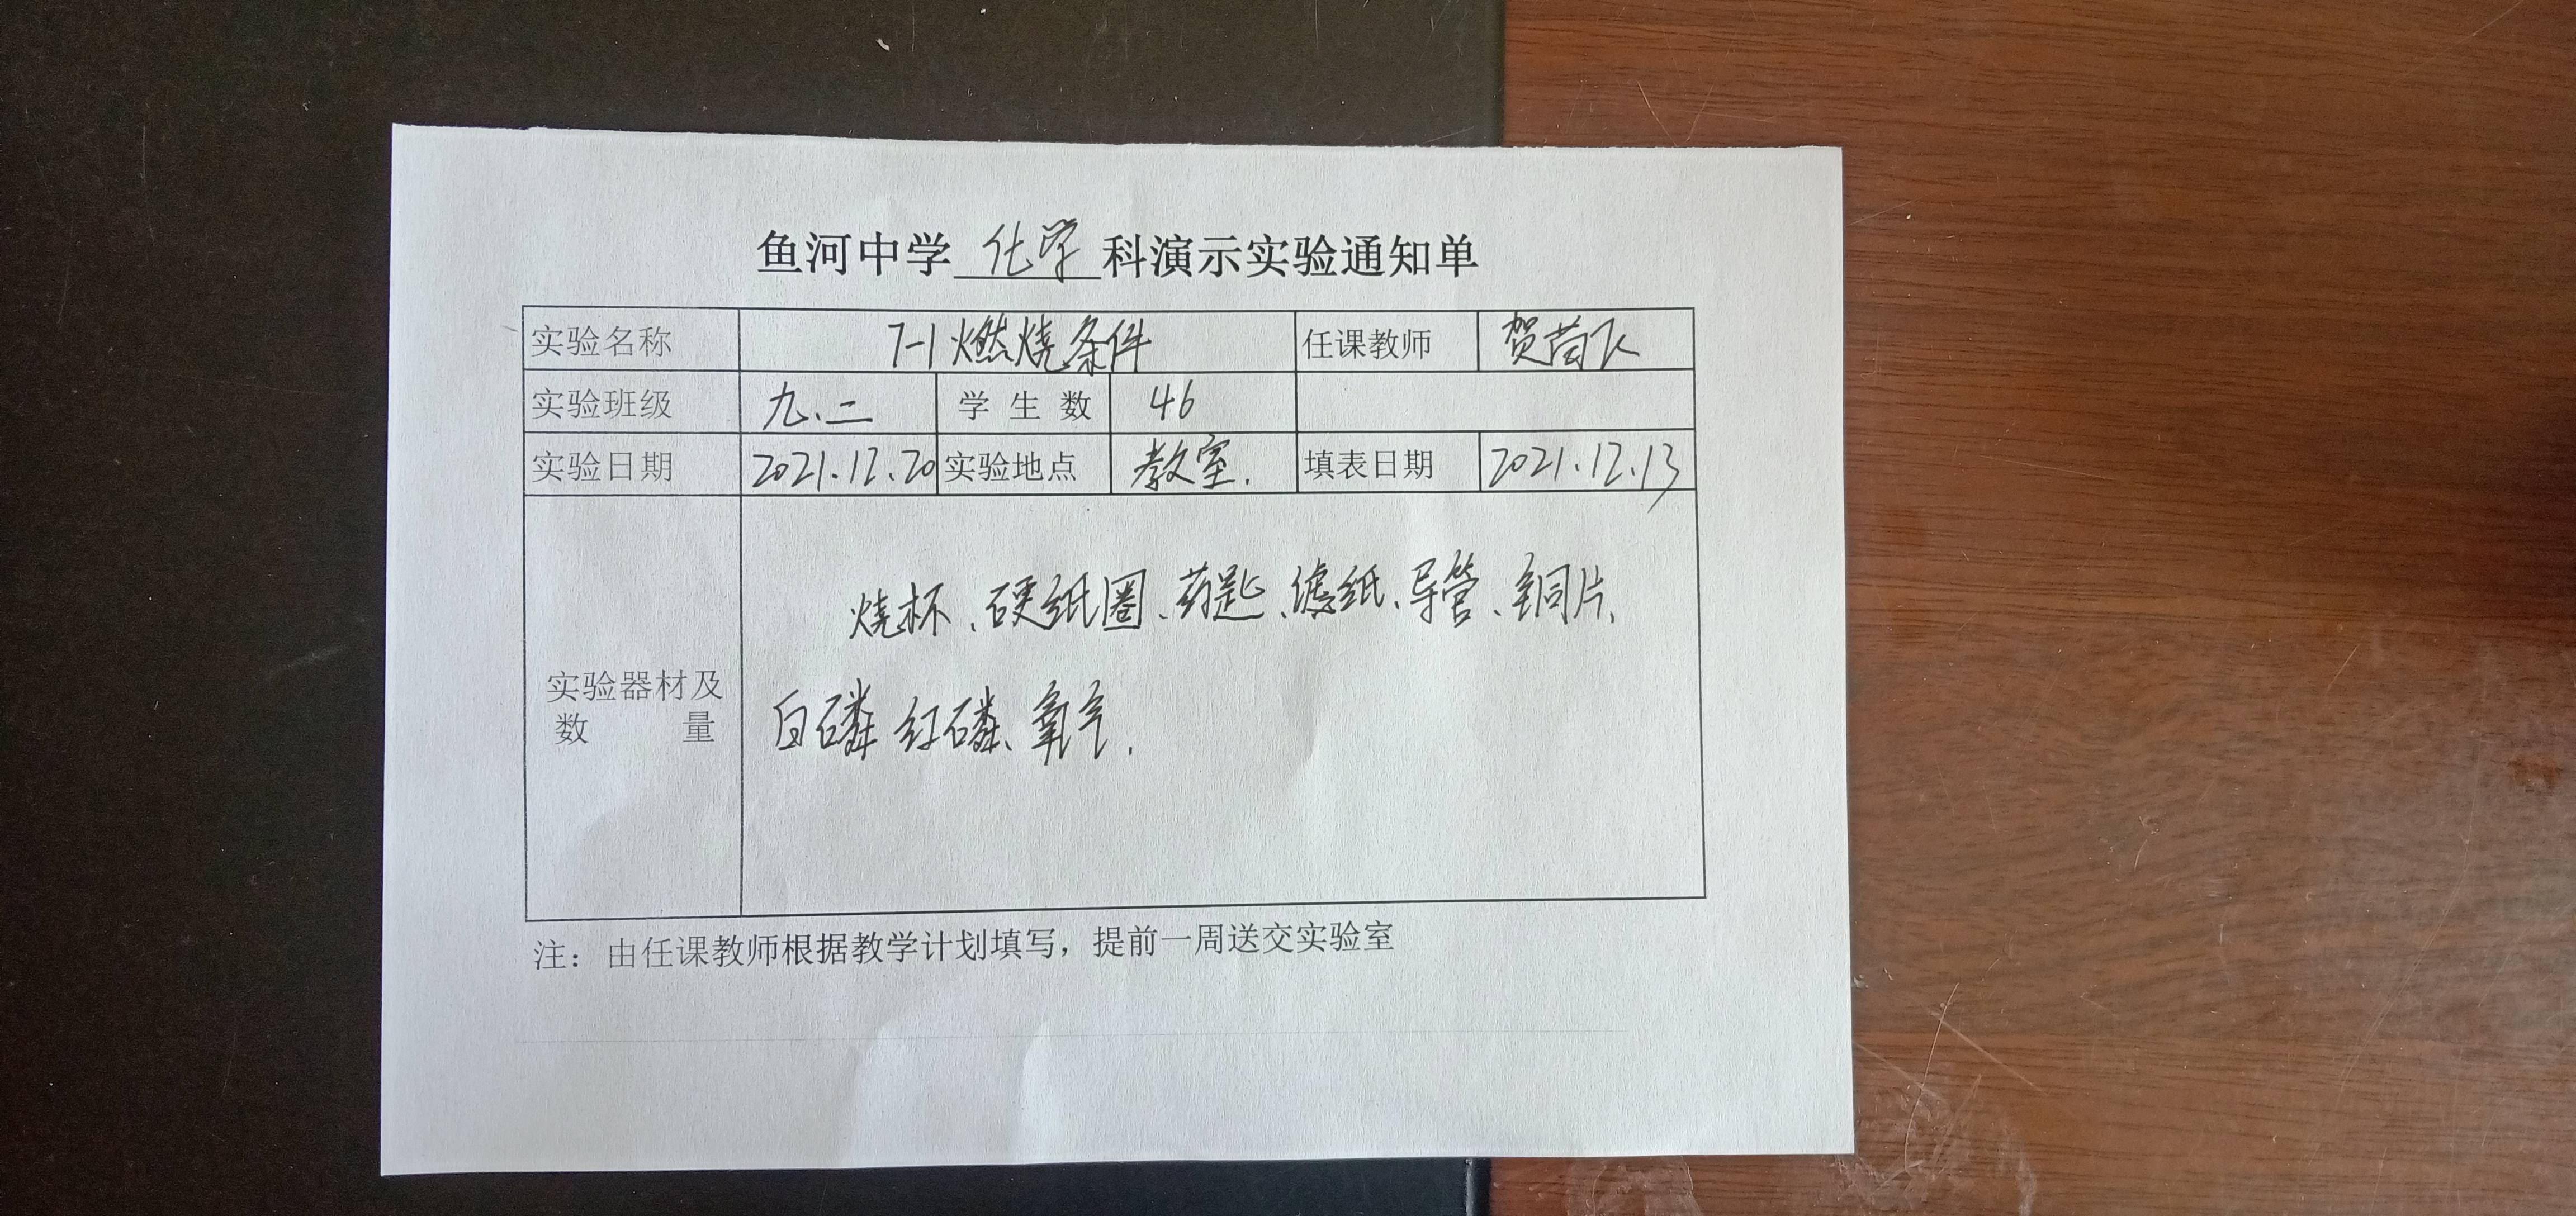 鱼河中学 化学 科演示实验通知单
实验名称 7-1燃烧条件 任课教师 贺
实验班级 九、二 学生数 46
实验日期 2021.12.20 实验地点 教室. 填表日期 2021.12.13
烧杯、硬纸圈、药匙、滤纸、导管、铜片、
实验器材及
数量
白磷 红磷、氧气.
注：由任课教师根据教学计划填写，提前一周送交实验室